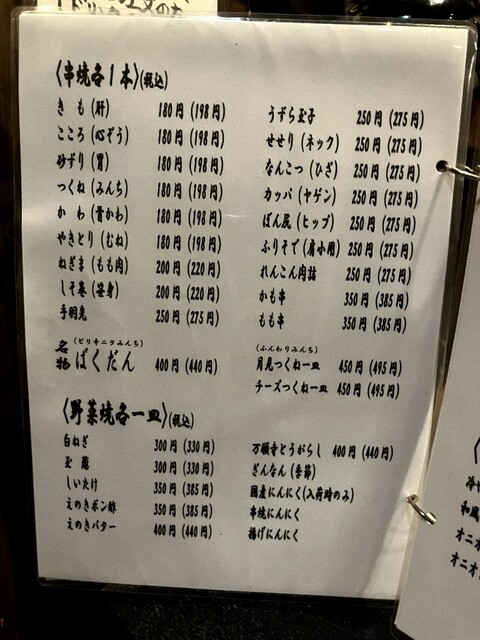 〈串焼各1本〉(税込)
きも(肝) 180円(198円)
こころ(心ぞう) 180円(198円)
砂ずり(胃) 180円(198円)
つくね(みんち) 180円(198円)
かわ(首かわ) 180円(198円)
やきとり(むね) 180円(198円)
ねぎま(もも肉) 200円(220円)
しそ巻(笹身) 200円(220円)
手羽先 250円(275円)
(ピリ辛ニラみんち)
名物 ばくだん 400円(440円)
うずら玉子 250円(275円)
せせり(ネック) 250円(275円)
なんこつ(ひざ) 250円(275円)
カッパ(ヤゲン) 250円(275円)
ぼん尻(ヒップ) 250円(275円)
ふりそで(肩小肉) 250円(275円)
れんこん肉詰 250円(275円)
かも串 350円(385円)
もも串 350円(385円)
(ふんわりみんち)
月見つくね一皿 450円(495円)
チーズつくね一皿 450円(495円)
〈野菜焼各一皿〉(税込)
白ねぎ 300円(330円)
玉葱 300円(330円)
しいたけ 350円(385円)
えのきポン酢 350円(385円)
えのきバター 400円(440円)
万願寺とうがらし 400円(440円)
ぎんなん(季節)
国産にんにく(入荷時のみ)
串焼にんにく
揚げにんにく
和風
オニオ
オニオ